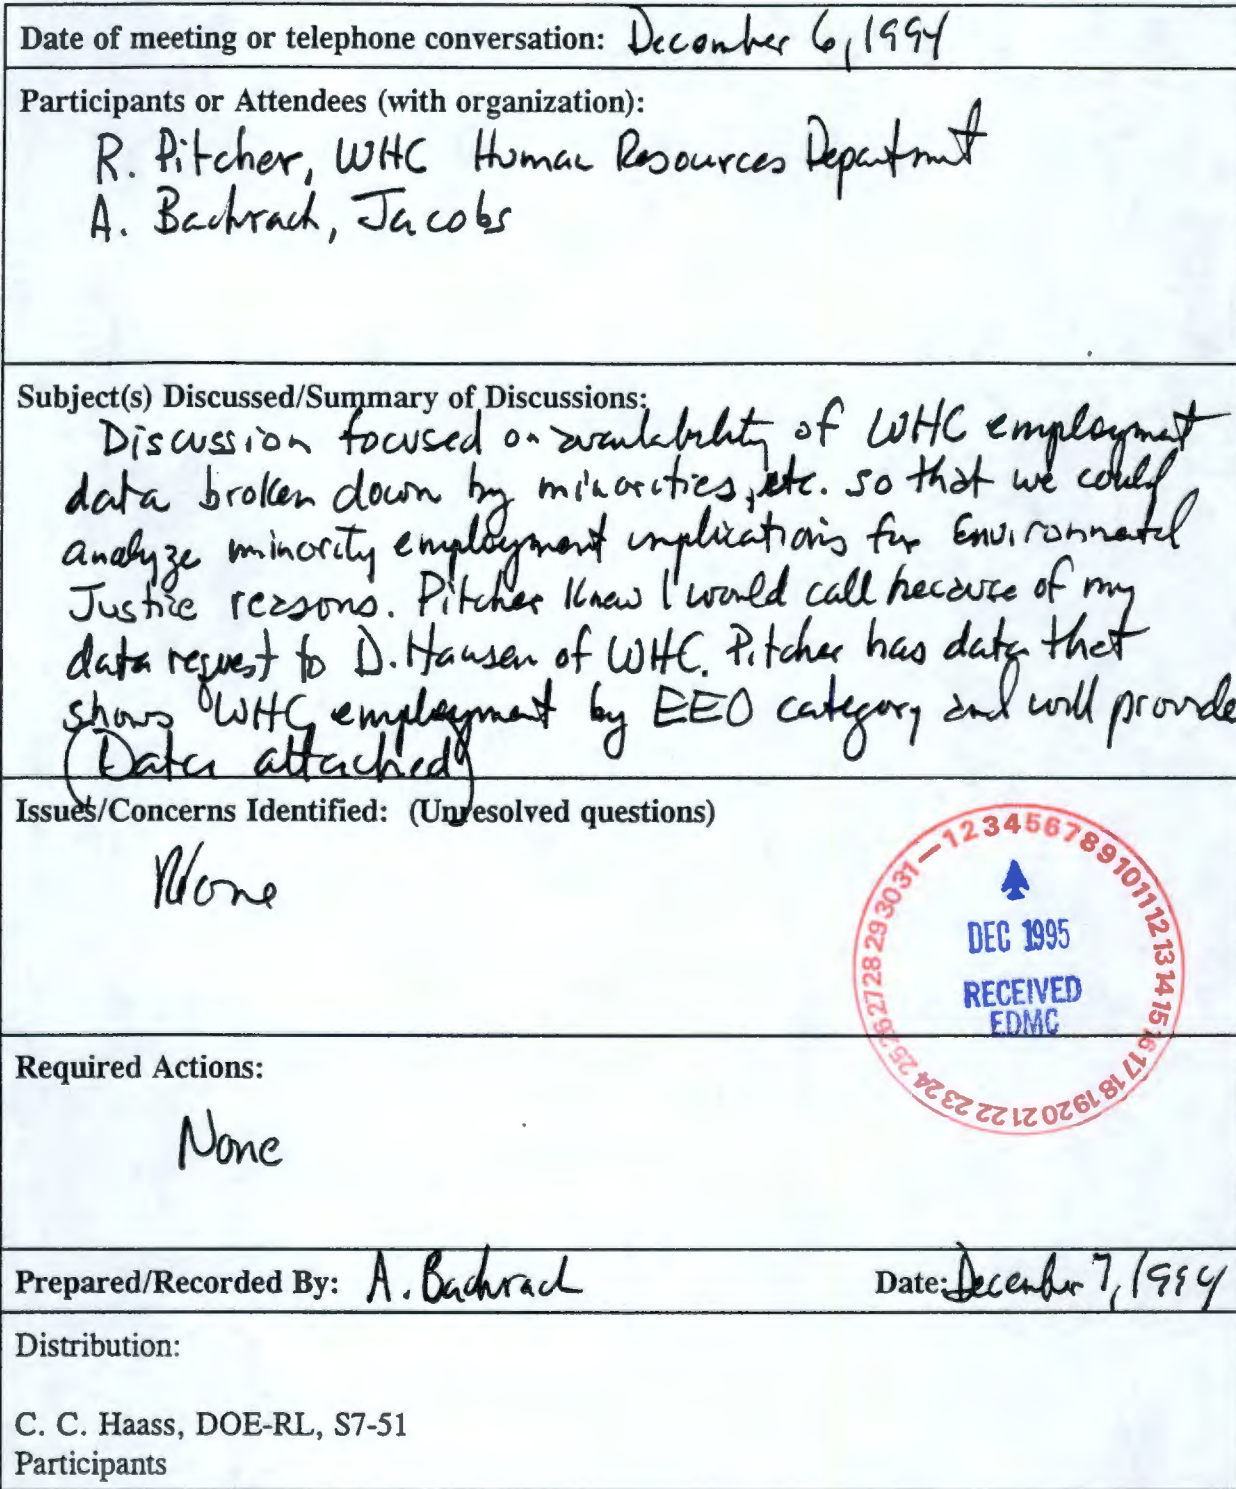 Date of meeting or telephone conversation: December 6, 1994
Participants or Attendees (with organization):
R. Pitcher, WHC Human Resources Department
A. Bachrach, Jacobs
Subject(s) Discussed/Summary of Discussions:
Discussion focused on availability of WHC employment
data broken down by minorities, etc. so that we could
analyze minority employment implications for Environmental
Justice reasons. Pitcher knew I would call because of my
data request to D. Hansen of WHC. Pitcher has data that
shows WHC employment by EEO category and will provide
(Data attached)
Issues/Concerns Identified: (Unresolved questions)
None
1 2 3 4 5 6 7 8 9 10 11 12 13 14 15 16 17 18 19 20 21 22 23 24 25 26 27 28 29 30 31
DEC 1995
RECEIVED
EDMC
Required Actions:
None
Prepared/Recorded By: A. Bachrach Date: December 7, 1994
Distribution:
C. C. Haass, DOE-RL, S7-51
Participants